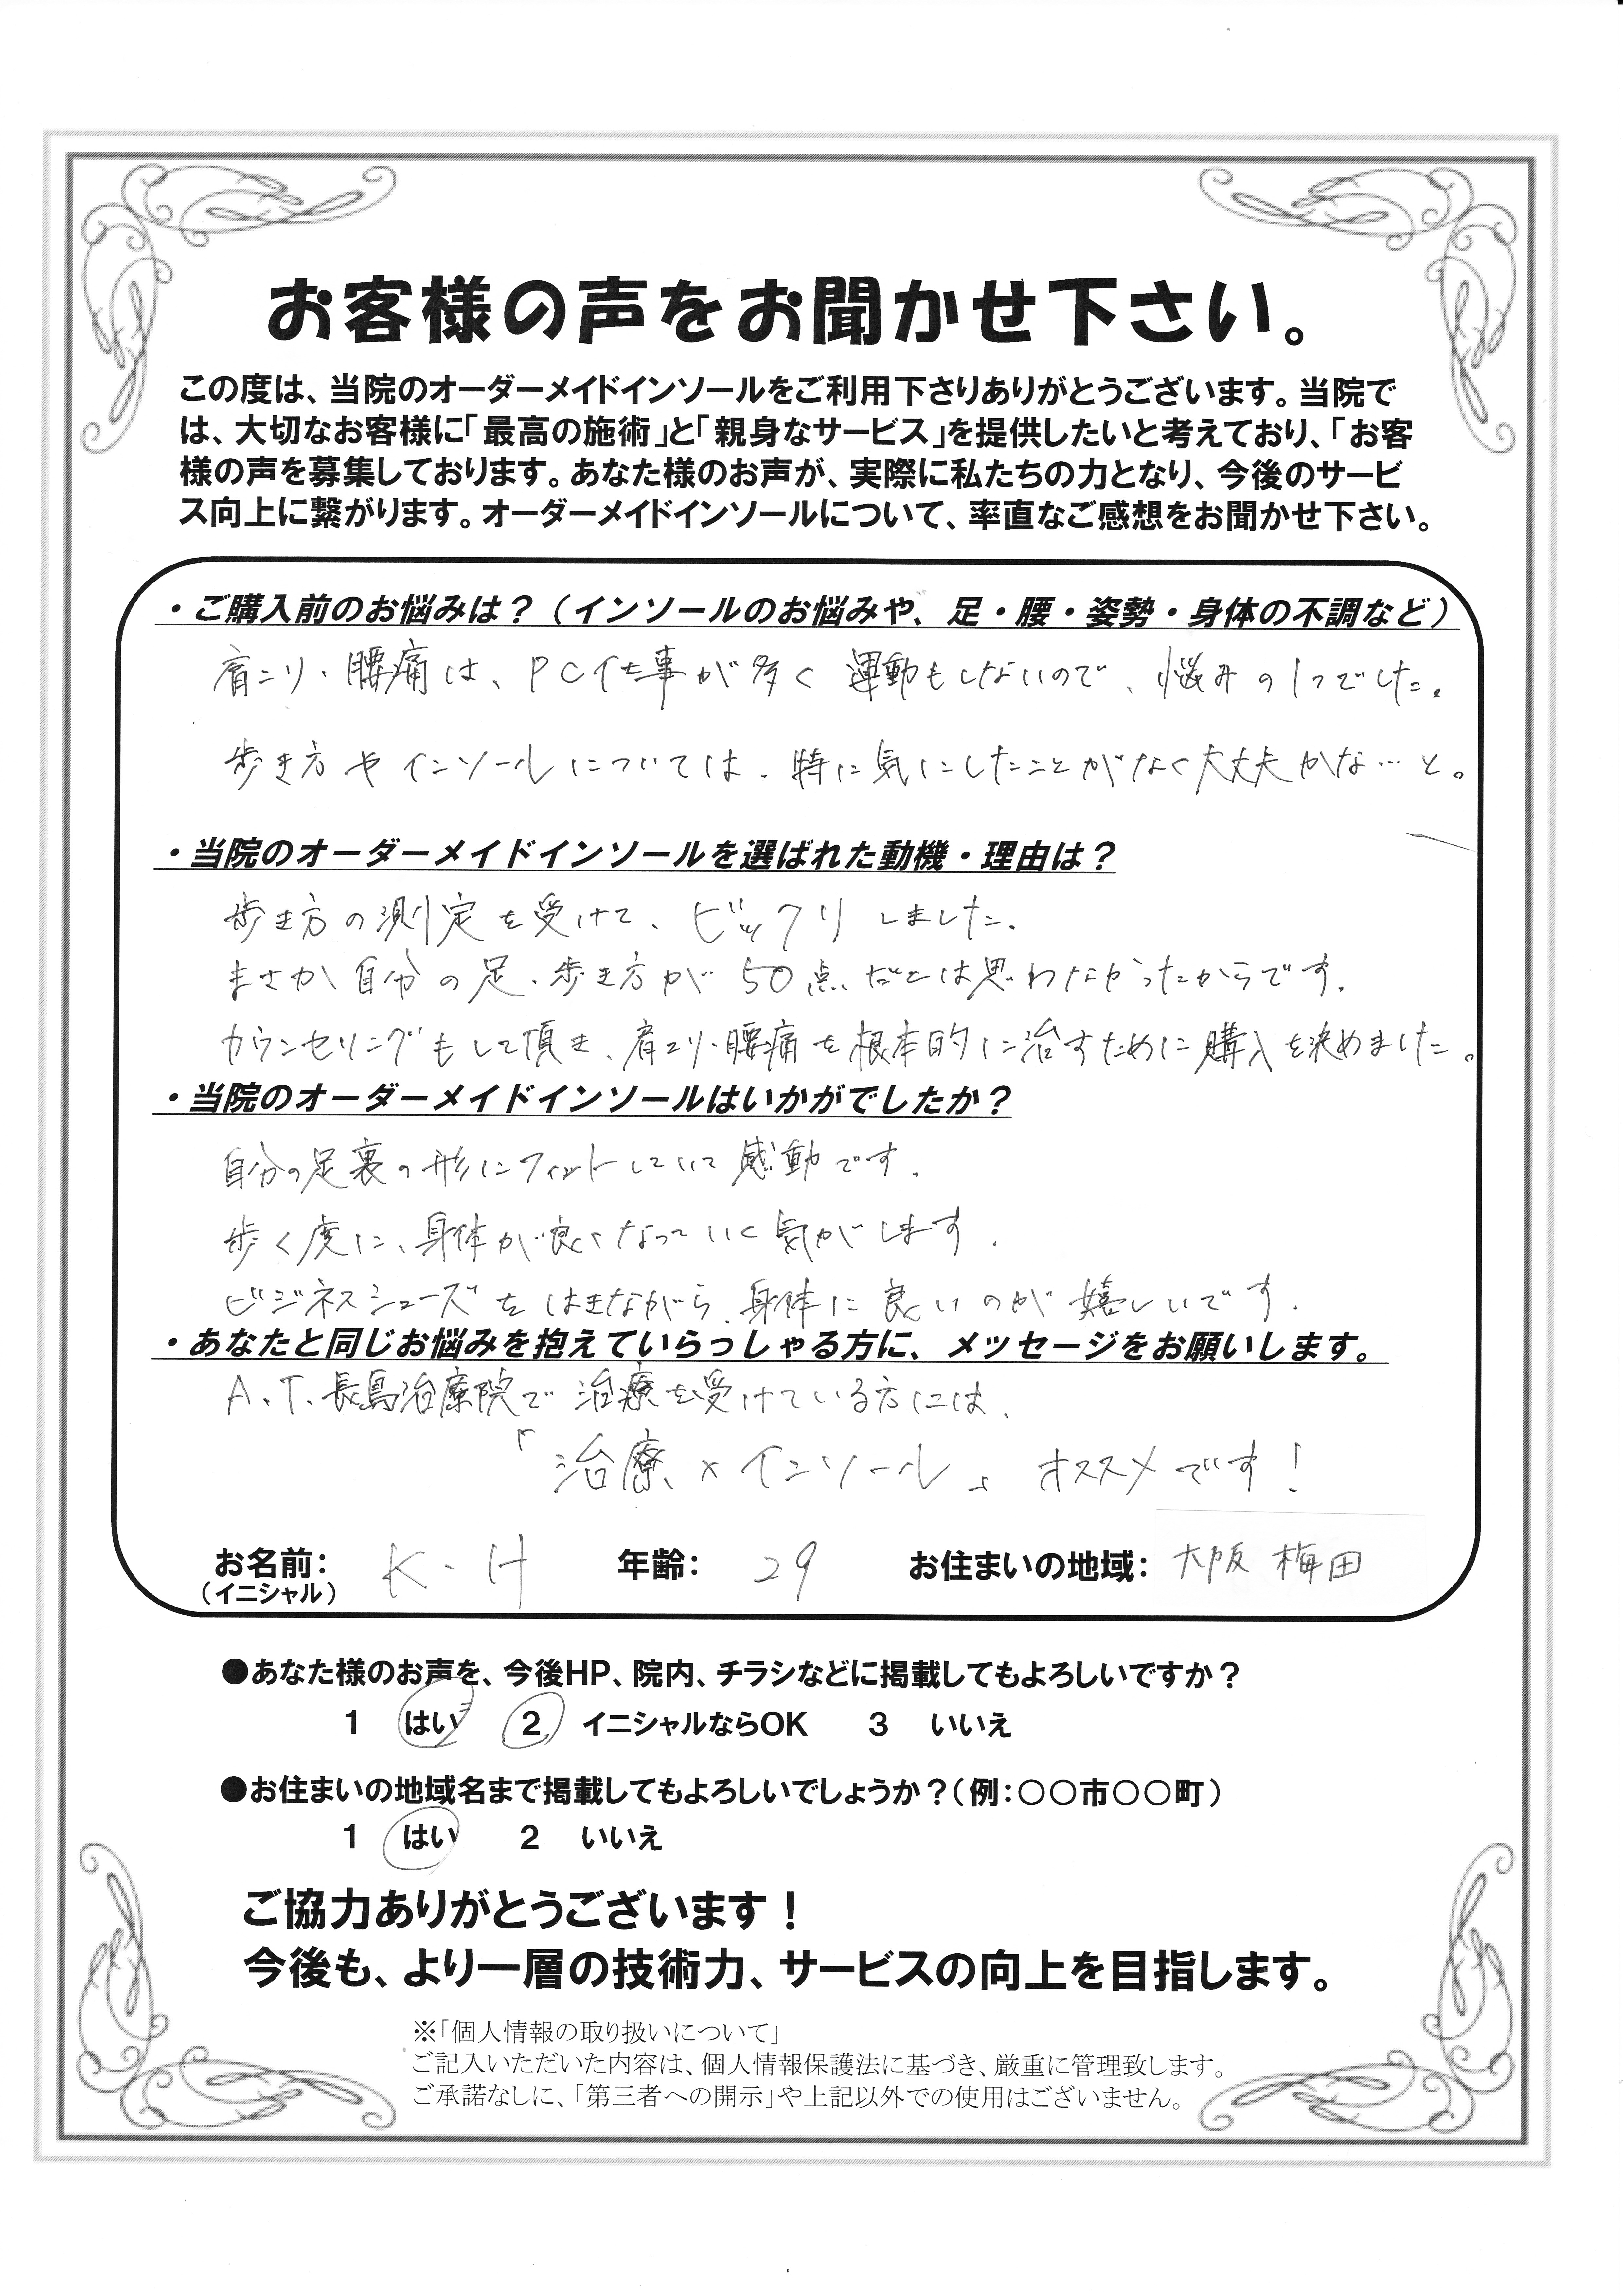 お客様の声をお聞かせ下さい。
この度は、当院のオーダーメイドインソールをご利用下さりありがとうございます。当院で
は、大切なお客様に「最高の施術」と「親身なサービス」を提供したいと考えており、「お客
様の声を募集しております。あなた様のお声が、実際に私たちの力となり、今後のサービ
ス向上に繋がります。オーダーメイドインソールについて、率直なご感想をお聞かせ下さい。
・ご購入前のお悩みは？（インソールのお悩みや、足・腰・姿勢・身体の不調など）
肩コリ・腰痛は、PC仕事が多く運動もしないので、悩みの1つでした。
歩き方やインソールについては、特に気にしたことがなく大丈夫かな…と。
・当院のオーダーメイドインソールを選ばれた動機・理由は？
歩き方の測定を受けて、ビックリしました。
まさか自分の足、歩き方が50点だとは思わなかったからです。
カウンセリングもして頂き、肩コリ・腰痛を根本的に治すために購入を決めました。
・当院のオーダーメイドインソールはいかがでしたか？
自分の足裏の形にフィットしていて感動です。
歩く度に、身体が良くなっていく気がします。
ビジネスシューズをはきながら、身体に良いのが嬉しいです。
・あなたと同じお悩みを抱えていらっしゃる方に、メッセージをお願いします。
A.T.長島治療院で治療を受けている方には、
「治療×インソール」オススメです！
お名前： K・H 年齢： 29 お住まいの地域： 大阪 梅田
（イニシャル）
●あなた様のお声を、今後HP、院内、チラシなどに掲載してもよろしいですか？
1 はい 2 イニシャルならOK 3 いいえ
●お住まいの地域名まで掲載してもよろしいでしょうか？（例：○○市○○町）
1 はい 2 いいえ
ご協力ありがとうございます！
今後も、より一層の技術力、サービスの向上を目指します。
※「個人情報の取り扱いについて」
ご記入いただいた内容は、個人情報保護法に基づき、厳重に管理致します。
ご承諾なしに、「第三者への開示」や上記以外での使用はございません。